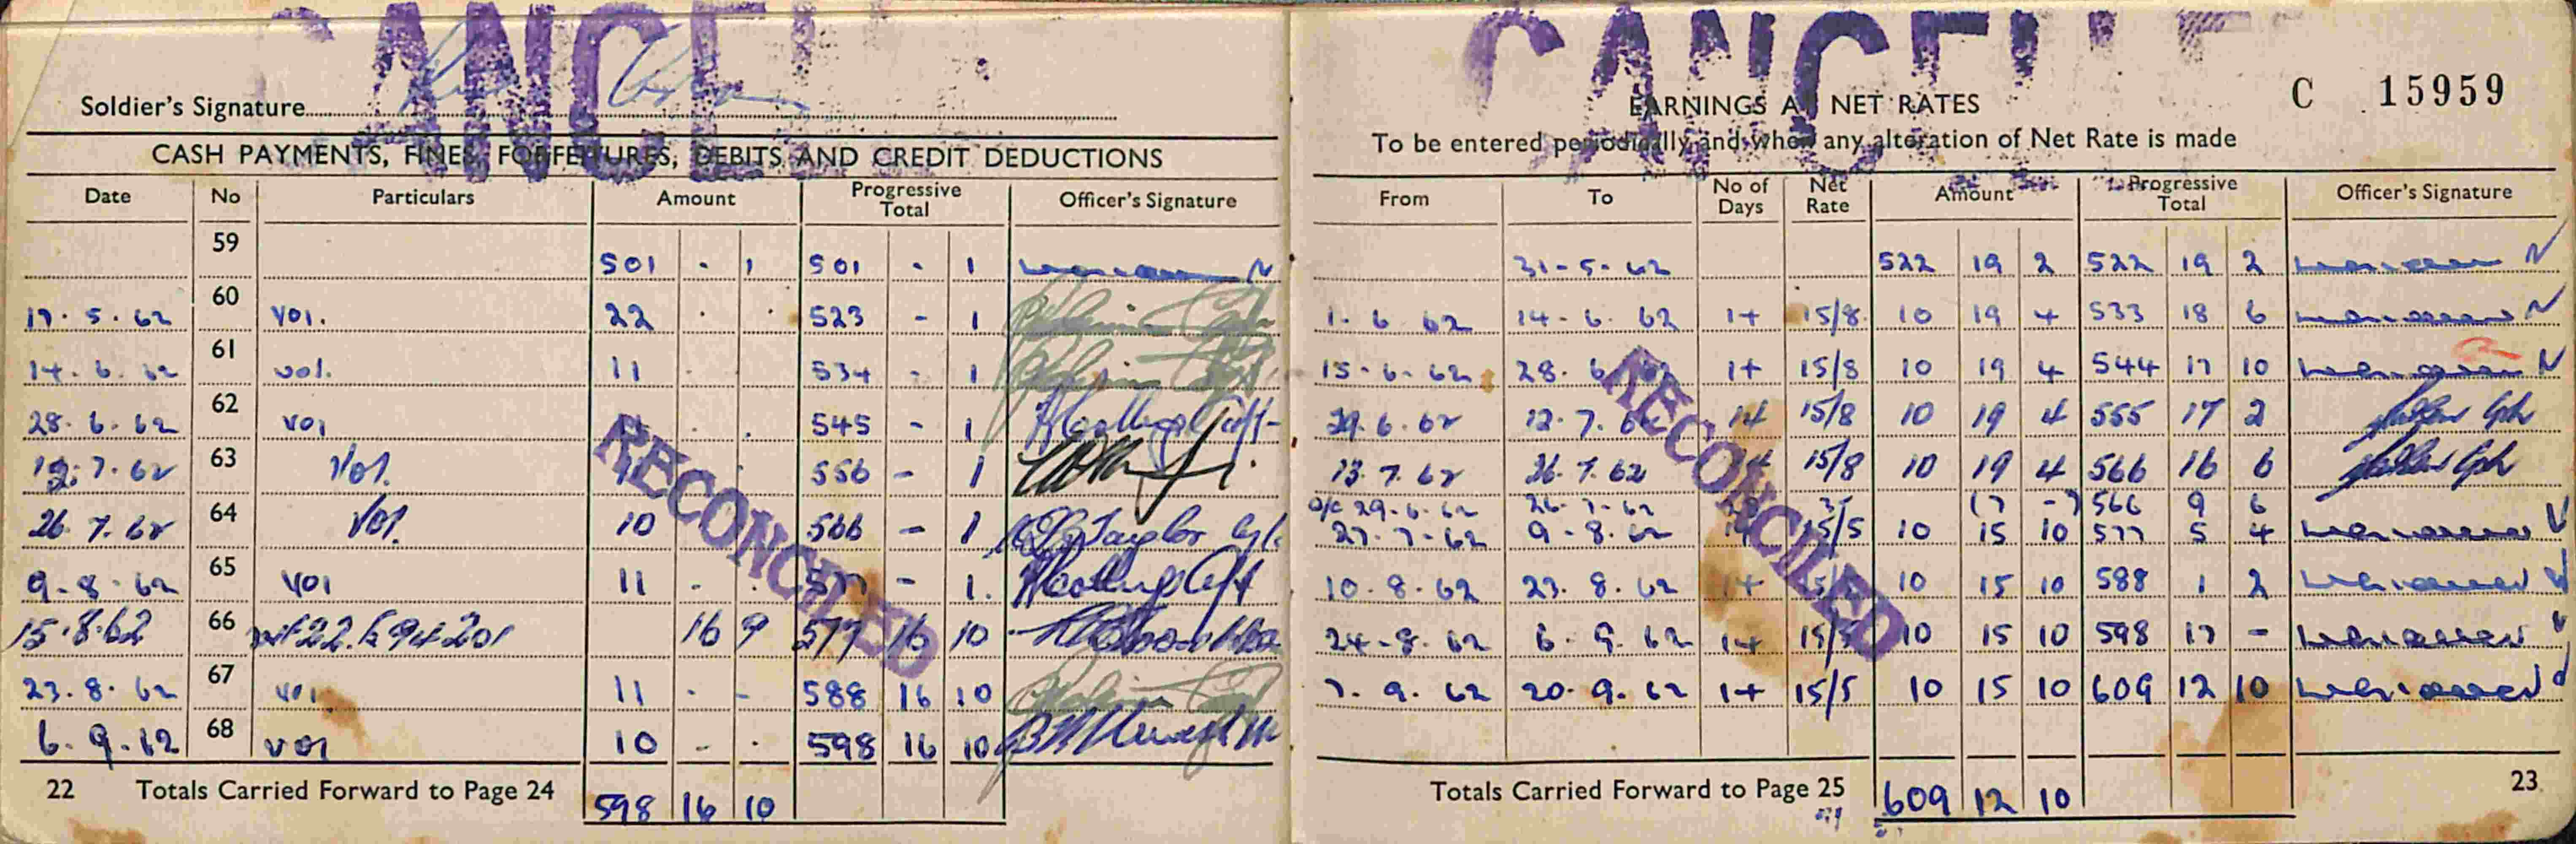 CANCELLE
CANCELLE
Soldier's Signature
CASH PAYMENTS, FINES, FORFEITURES, DEBITS AND CREDIT DEDUCTIONS
Date No Particulars Amount Progressive Total Officer's Signature
59 501 . 1 501 . 1
17.5.62 60 V01. 22 . . 523 - 1
14.6.62 61 vol. 11 . . 534 - 1
28.6.62 62 V01 . . 545 - 1
12.7.62 63 V01. 556 - 1
26.7.62 64 V01. 10 566 - 1 Taylor
9-8-62 65 V01 11 - . 577 - 1.
15.8.62 66 16 9 577 16 10
23.8.62 67 V01. 11 - - 588 16 10
6.9.62 68 V01 10 - . 598 16 10
RECONCILED
22 Totals Carried Forward to Page 24 598 16 10
C 15959
EARNINGS AT NET RATES
To be entered periodically and when any alteration of Net Rate is made
From To No of Days Net Rate Amount Progressive Total Officer's Signature
31-5-62 522 19 2 522 19 2
1-6-62 14-6-62 14 15/8 10 19 4 533 18 6
15-6-62 28-6-62 14 15/8 10 19 4 544 17 10
29.6.62 12.7.62 14 15/8 10 19 4 555 17 2
13.7.62 26.7.62 14 15/8 10 19 4 566 16 6
O/C 29-6-62 26-7-62 (7 -) 566 9 6
27-7-62 9-8-62 14 15/5 10 15 10 577 5 4
10-8-62 23.8.62 14 10 15 10 588 1 2
24-8-62 6-9-62 14 15/5 10 15 10 598 17 -
7.9.62 20.9.62 14 15/5 10 15 10 609 12 10
RECONCILED
Totals Carried Forward to Page 25 609 12 10
23